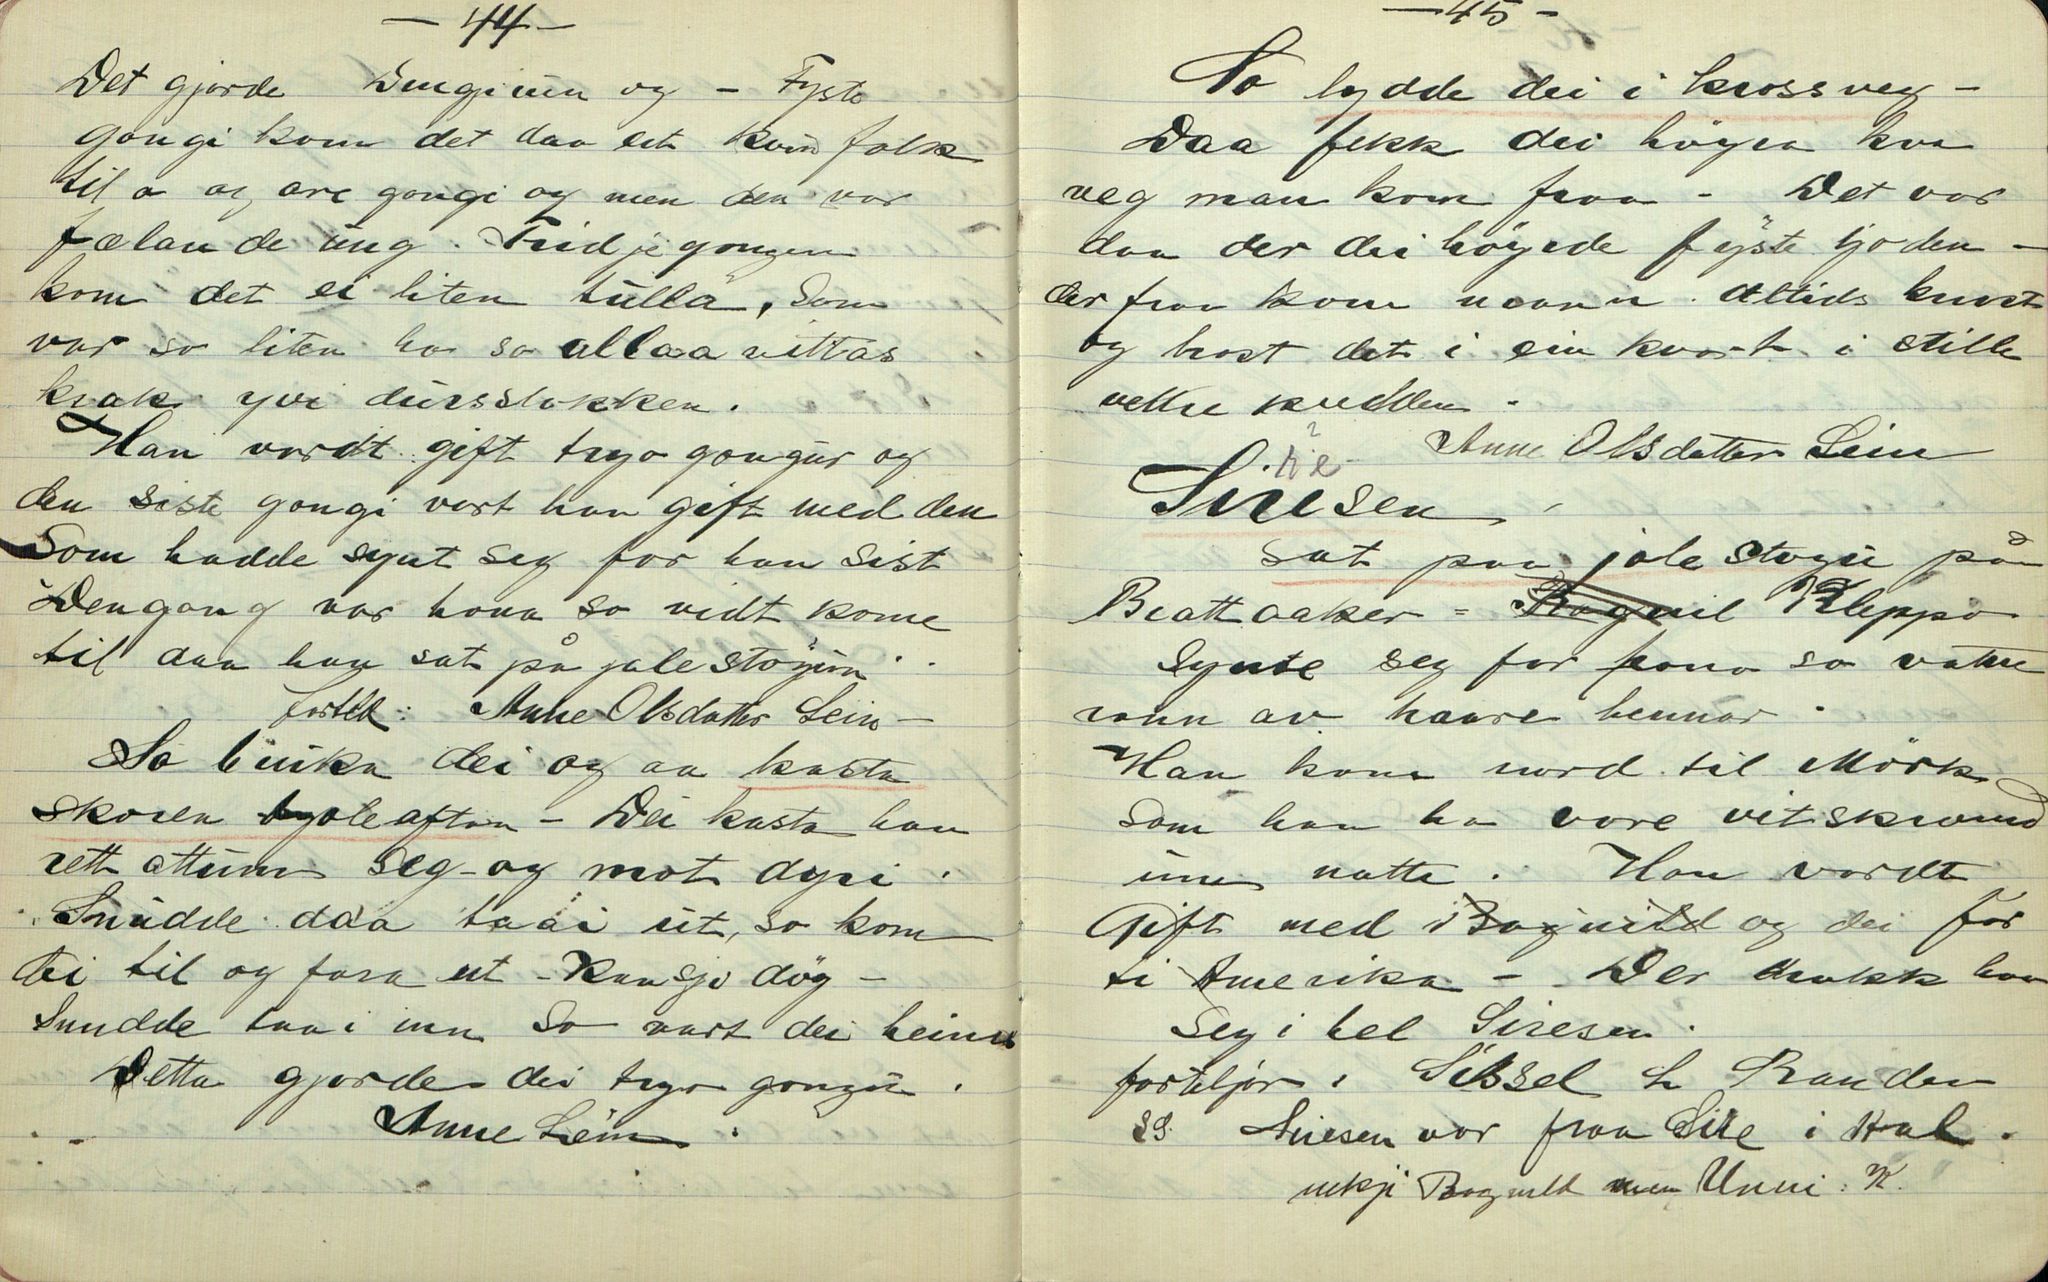 - 44 -
Det gjorde Drengjinn og - Fyste
gongi kom det daa eit kvinnfolk
til o og are gongi og men den var
fælande ung. Tridje gongen
kom det ei liten tulla, som
var so liten ho so allaa vittas
krak yvi dursstokken.
Han vardt gift tryo gongur og
den siste gongi vart han gift med den
Som hadde synt seg for han sist
Dengong var hona so vidt kome
til daa han sat på jolestogun.
fortld: Anne Olsdatter Lein -
So bruka dei og aa kasta
skoren joleaftan - Dei kasta han
rett attum seg - og mot dyri.
Snudde daa taai ut, so kom
dei til og fara ut - Kansje döy -
Snudde taai inn so vart dei heime
Detta gjorde dei tryo gongu.
Anne Lein.
- 45 -
So lydde dei i krossveg -
Daa fekk dei höyra kva
veg man kom fraa - Det var
daa der dei höyrde fyste ljoden -
der fraa kom mann. Altids kvast
og brast det i ein kvart i stille
vettre kvelden.
Anne Olsdatter Lein
re ?
Siresen
sat paa jolestogu på
Brattaaker = Rognil Kleppo
Synte seg for hono so vatne
rann av haare hennar.
Han kom nord til Mörk
som han ha vore vitskræmd
um natte. Han vardt
Gift med Rognild og dei for
ti Amerika - Der drakk han
Seg i hel Siresen.
forteljar. Sissel L Randen
SS. Siresen var fraa Sire i Hal.
inkje Rognild men Unni. K.